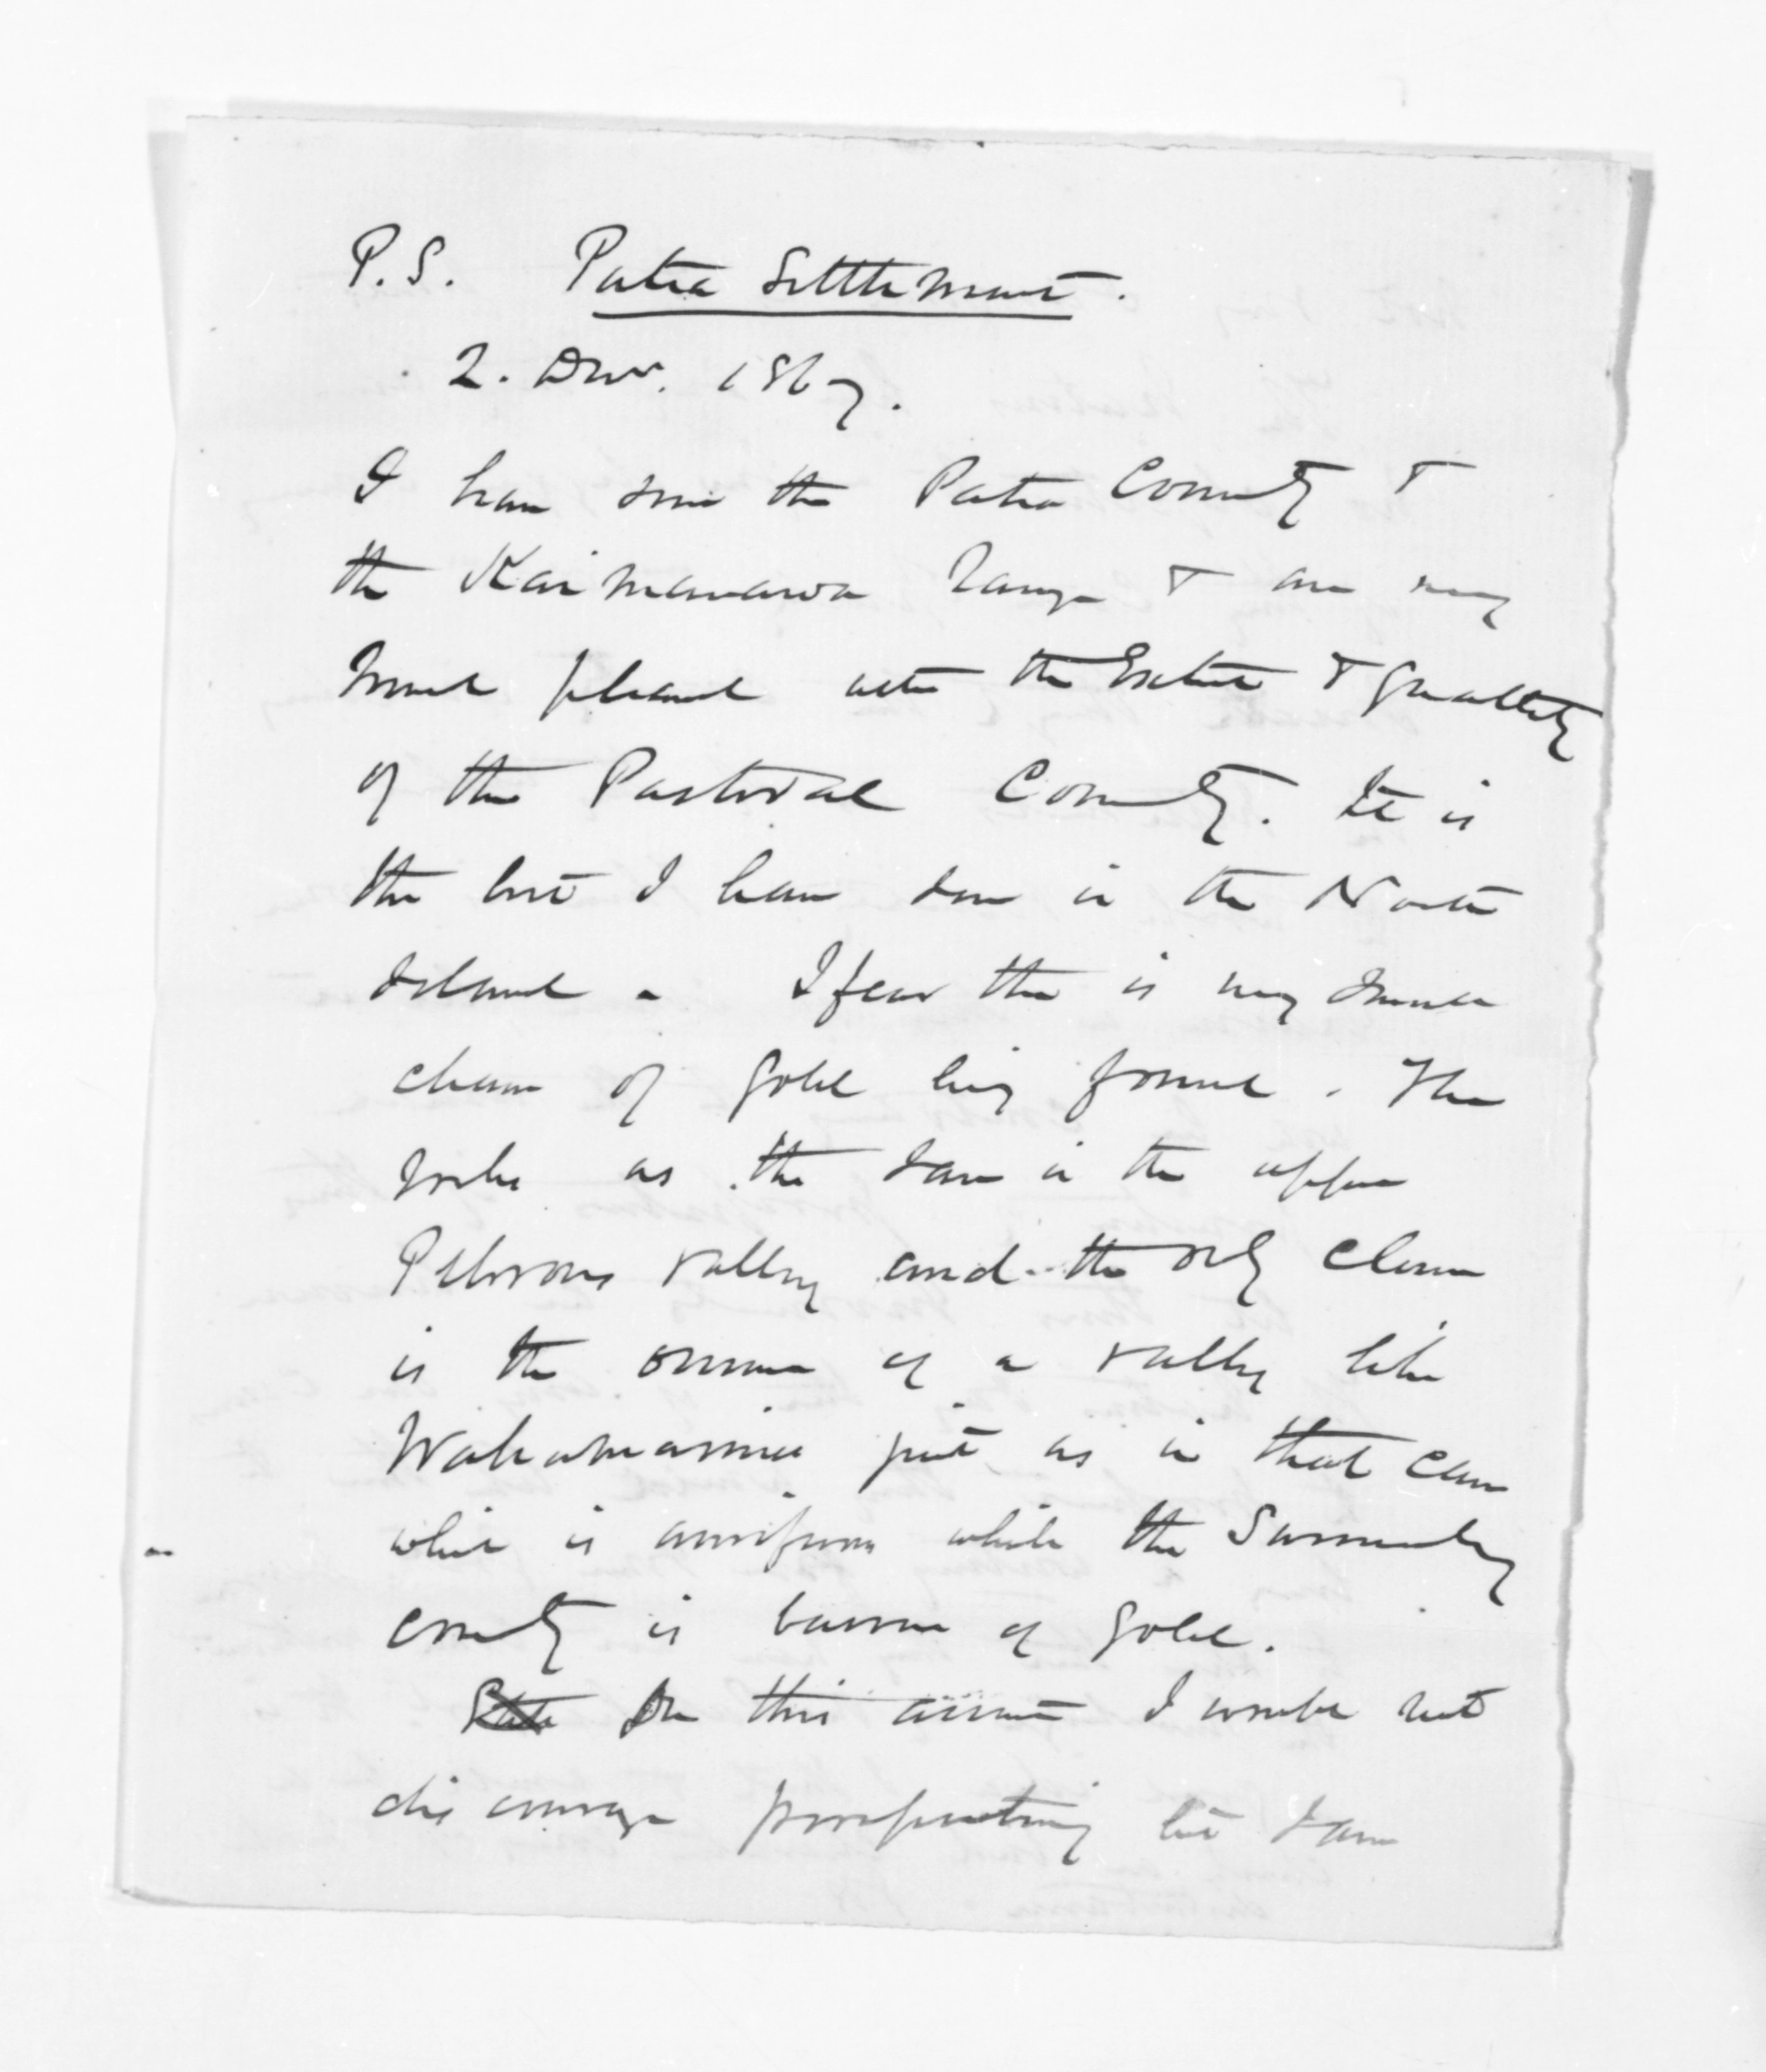 P.S. Patea Settlement.
2. Decr. 1867.
I have seen the Patea Country &
the Kaimanawa range & am very
much pleased with the Extent & quality
of the Pastoral Country. It is
the best I have seen in the North
Island - I fear there is very small
chance of gold being found. The
rocks as the same in the upper
Pelorous valley and the only chance
is the occurrence of a valley like
Wakamarina just as in that case
which is auriferous while the Surrounding
country is barren of gold.
On this account I would not
discourage prospecting but